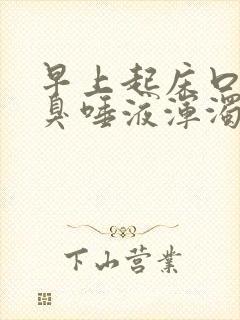 早上起床口
臭唾液浑浊
下山营业